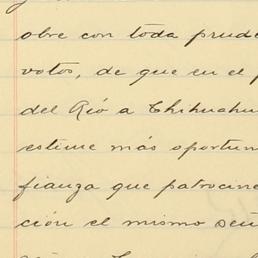 obre con toda prude
votos, de que en el p
del Rió a Chihuahu
estime más oportun
fianza que patrocine
ción el mismo señ